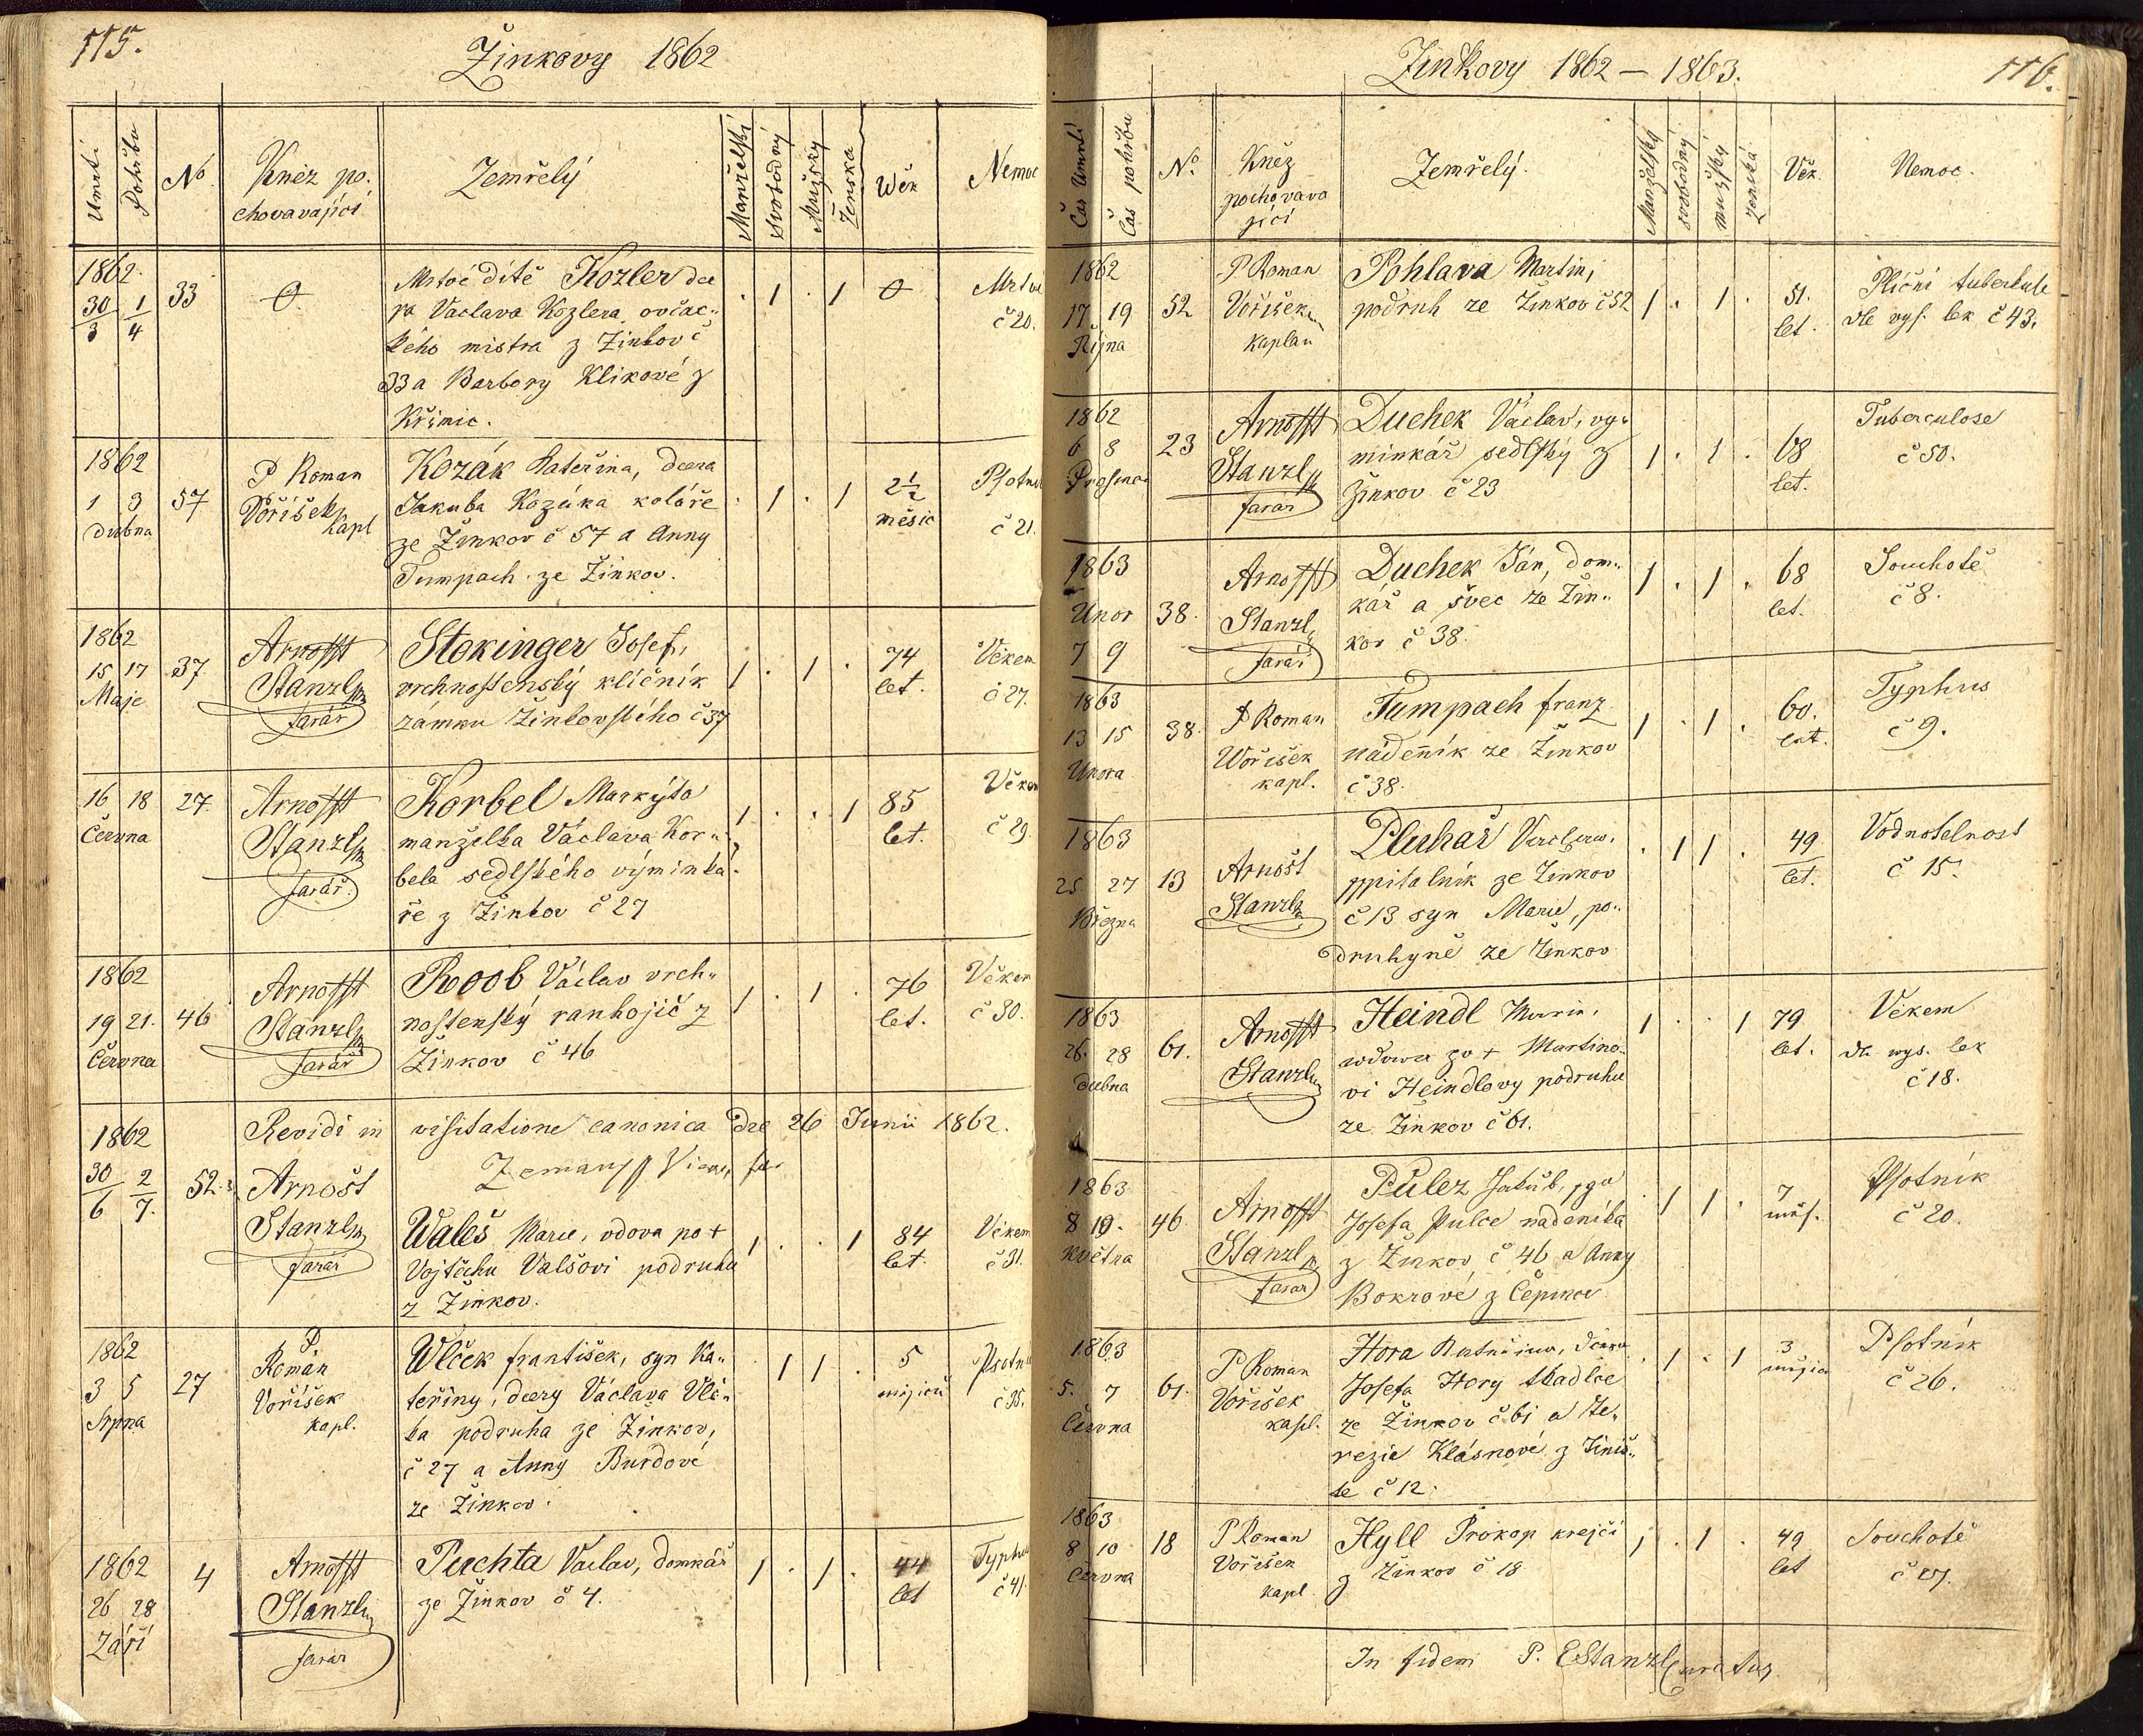 115.
Žinkovy 1862
Umrtí
Pohřbu
No
Kněz po.
chovavajicí
Zemřelý
Manželski
svobodný
Mužský
Ženska
Wěk
Nemoc
1862.
30/3 1/4
33
0
Mrtvé dítě Kozler dce
ra Vaclava Kozlera ovčac„
kého mistra z Žinkov č
33 a Barbory Klikové z
Křimic.
. 1 . 1
0
č 20.
1862
1 3
Dubna
57
P Roman
Voříšek
kapl
Kozák Kateřina, dcera
Jakuba Kozáka koláře
ze Žinkov č 57 a Anny
Tumpach ze Žinkov.
. 1 . 1
2 1/2
měsic
č 21.
1862
15 17
Maje
37
Arnošt
Stanzl
farář
Stokinger Josef,
vrchnostenský klíčník
zámku Žinkovského č 37
1 . 1 .
74
let.
Věkem
č 27.
16 18
Června
27
Arnošt
Stanzl
farář.
Korbel Markýta
manželka Václava Kor„
bela sedlského výminká„
ře z Žinkov č 27
1 . . 1
85
let.
č 29
1862
19 21.
Června
46
Arnošt
Stanzl
farář
Roob Václav vrch„
nostenský ranhojič z
Žinkov č 46
1 . 1 .
76
let.
č 30.
1862
Revidi in visitatione canonica Die 26 Junii 1862.
Zeman
30/6 2/7.
52
Arnošt
Stanzl
farář
Waleš Marie, vdova po +
Vojtěchu Valšovi podruhu
z Žinkov.
1 . . 1
84
let.
Věkem
č 31.
1862
3 5
Srpna
27
P
Roman
Voříšek
kapl.
Wlček františek, syn Ka„
teřiny, dcery Václava Vlč„
ka podruha ze Žinkov,
č 27 a Anny Burdové
ze Žinkov.
. 1 1 .
5
měsiců
č 35.
1862
26 28
Září
4
Arnošt
Stanzl
farář
Puchta Vaclav, domkář
ze Žinkov č 4.
1 . 1 .
44
let
č 41.
Žinkovy 1862 – 1863.
116.
Čas Umrtí
Čas pohřbu
No.
Kněz
pochovava
jící
Zemřelý.
Manželský
svobodný
mužský
ženská
Věk.
Nemoc.
1862
17. 19
Října
52
P Roman
Voříšek
kaplan
Pohlava Martin,
podruh ze Žinkov č 52
1 . 1 .
51.
let.
Plicní tuberkule
dle vys. lek č 43.
1862
6 8
Prosince
23
Arnošt
Stanzl
farář
Duchek Václav, vý„
minkář sedlský z
Žinkov č 23
1 . 1 .
68
let.
Tuberculose
č 50.
1863
Unor
7 9
38.
Arnošt
Stanzl
farář
Duchek Ján, dom„
kář a švec ze Žin„
kov č 38.
1 . 1 .
68
let.
Souchotě
č 8.
1863
13 15
Unora
38.
P Roman
Wořišek
kapl.
Tumpach franz.
nádeník ze Žinkov
č 38.
1 . 1 .
60.
let.
Typhus
č 9.
1863
25. 27
Března
13
Arnošt
Stanzl
Pluhař
špitalník ze Žinkov
č 13 syn Marie, po„
druhyně ze Žinkov
. 1 1 .
49
let.
Vodnotelnost
č 15.
1863
26. 28
Dubna
61.
Arnošt
Stanzl
Heindl Marie,
wdowa po + Martino„
vi Heindlovy podruhu
ze Žinkov č 61.
1 . . 1
79
let.
Věkem
dle wys. lek
č 18.
1863
8 10.
Května
46
Arnošt
Stanzl
farář
Pulez Jakub, syn
Josefa Pulce nádeníka
z Žinkov č 46 a Anny
Bokrové z Čepince
. 1 1 .
7
měs.
Psotník
č 20.
1863
5. 7
Června
61.
P Roman
Voříšek
kapl.
Hora Kateřina, dcera
Josefa Hory tkadlce
ze Žinkov č 61 a Te„
rezie Klásnové z Jiniš„
tě č 12.
. 1 . 1
3
měsice
Psotník
č 26.
1863
8 10
Června
18
P Roman
Voříšek
kapl.
Hyll Prokop krejčí
z Žinkov č 18
1 . 1 .
49
let
Souchotě
č 27.
In fidem P. EStanzl curatus